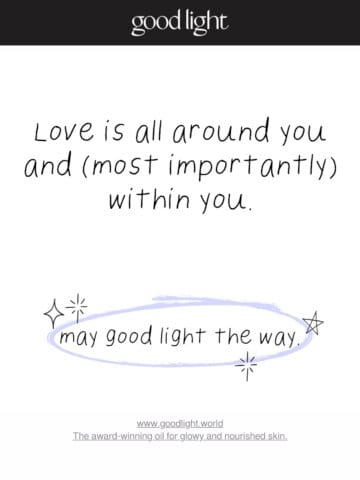 good light
Love is all around you
and (most importantly)
within you.
may good light the way.
www.goodlight.world
The award-winning oil for glowy and nourished skin.